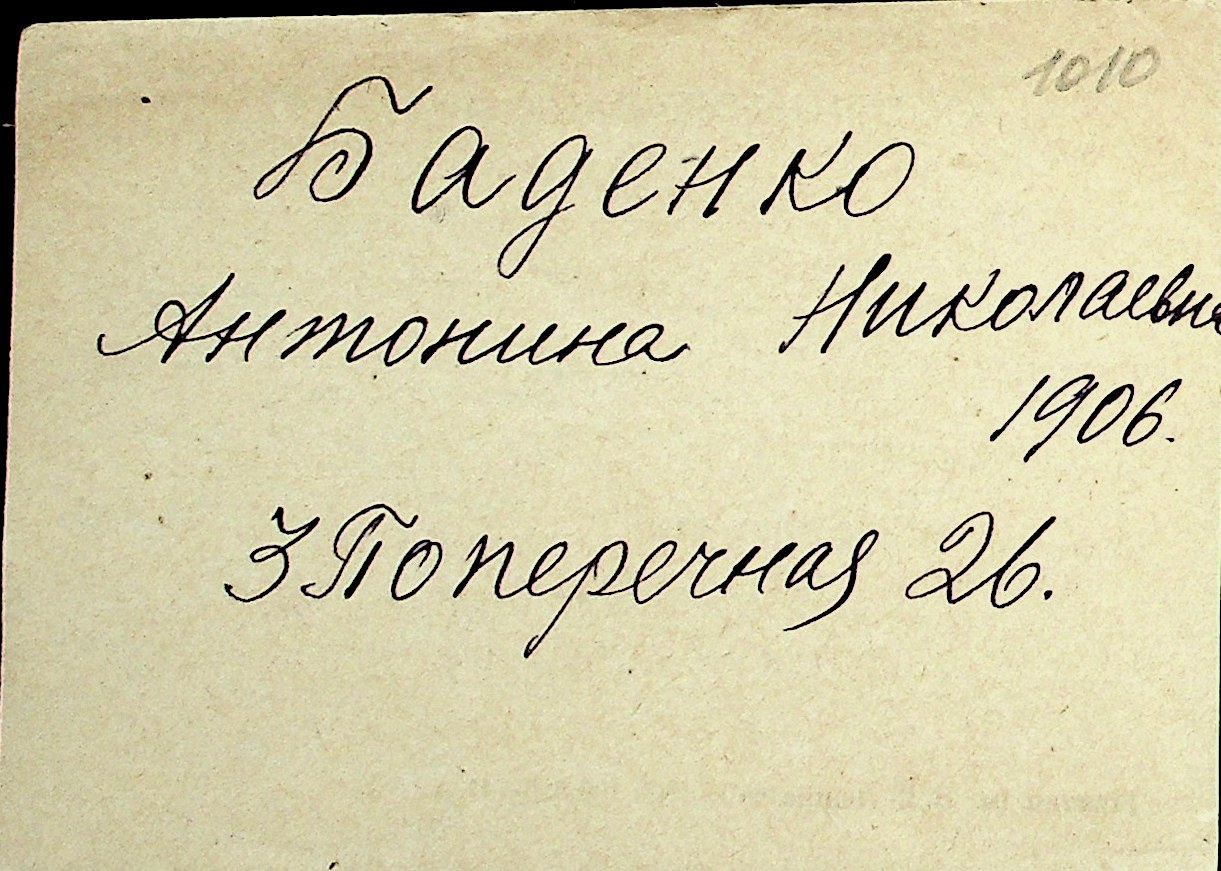 1010
Баденко
Антонина Николаевна
1906.
3 Поперечная 26.